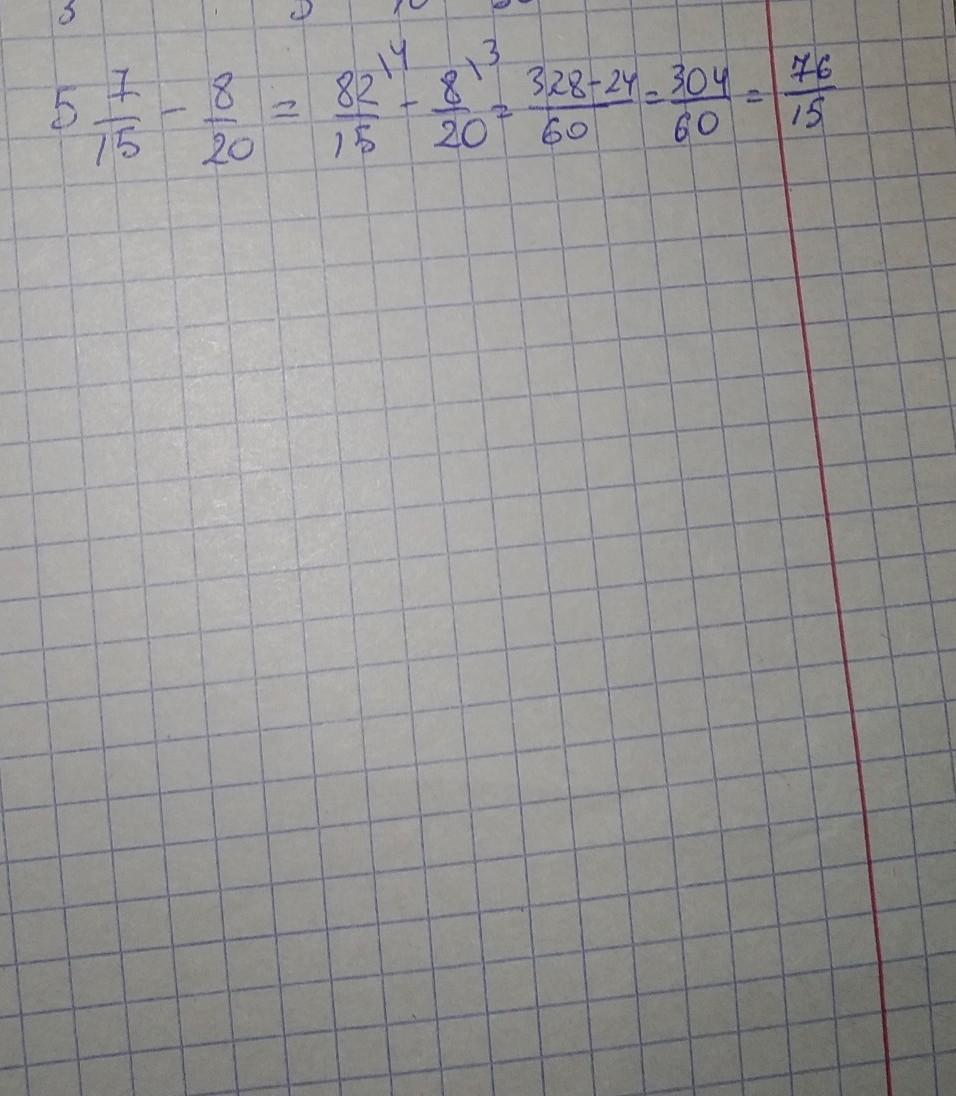 5 7/15 - 8/20 = 82\4/15 - 8\3/20 = 328-24/60 = 304/60 = 76/15